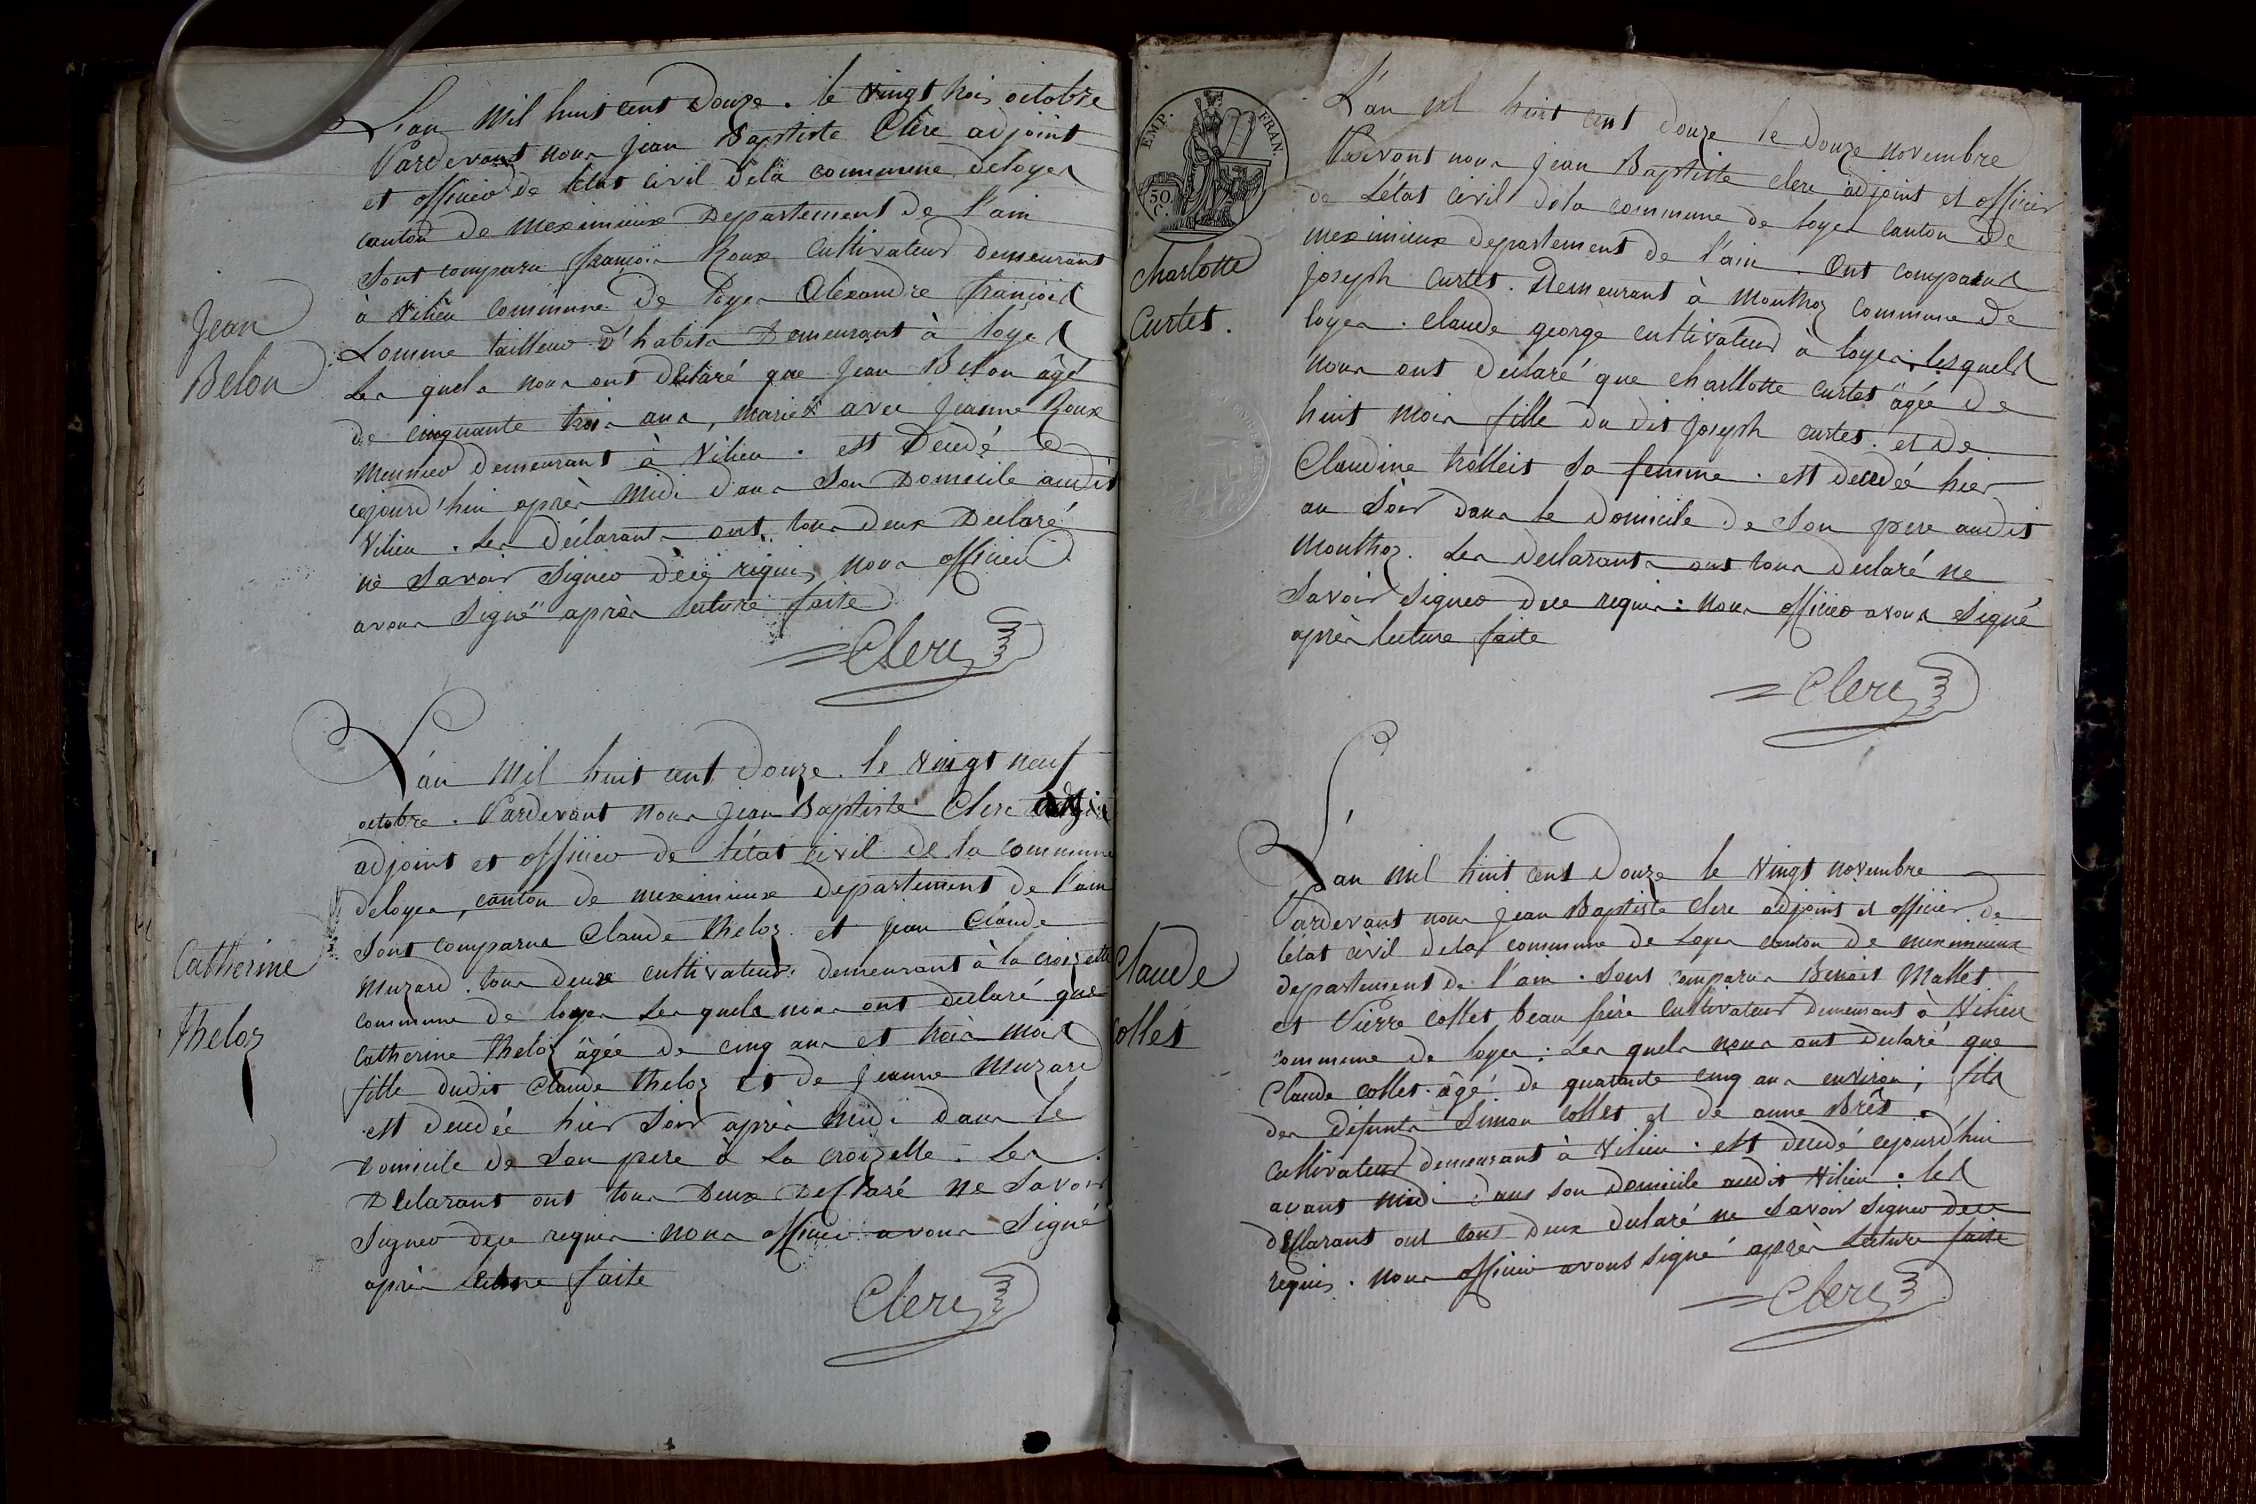 L'an mil huit cent douze . le vingt trois octobre
Pardevant nous Jean Baptiste Clerc adjoint
et officier de l'état civil de la commune de loyes
canton de meximieux Departement de l'ain
sont comparu françois Roux cultivateur demeurant
à Vilieu commune de loyes Alexandre françois
Lomme tailleur d'habits Demeurant à loyes
Les quels nous ont déclaré que Jean Belon âgé
de cinquante trois ans, marié avec Jeanne Roux
Meunier demeurant à Vilieu . est Décédé
cejourd'hui après midi dans son Domicile audit
Vilieu . Les déclarants ont tous deux Déclaré
ne savoir signer de ce requis, nous officier
avons signé après lecture faite
Clerc
Jean
Belon
L'an Mil huit cent douze . le vingt neuf
octobre . Pardevant nous Jean Baptiste Clerc
adjoint et officier de l'état civil de la commune
de loyes, canton de meximieux departement de l'ain
sont comparus Claude theloz et Jean Claude
Muzard . tous deux cultivateurs demeurant à la croizette
commune de loyes Les quels nous ont déclaré que
Catherine theloz âgée de cinq ans et trois mois
fille dudit Claude theloz et de Jeanne Muzard
est décédée hier soir après midi dans le
Domicile de son pere à La croizette . Les
Déclarant ont tous Deux Declaré ne savoir
signer de ce requis nous officier avons signé
après lecture faite
Clerc
Catherine
theloz
EMP. FRAN.
50 C.
L'an mil huit cent douze le douze novembre
nous Jean Baptiste clerc adjoint et officier
de L'état civil de la commune de loyes canton De
meximieux departement de l'ain . Ont comparus
joseph curtet . Demeurant à Monthoz commune De
loyes . claude george cultivateur à loyes . lesquels
nous ont declaré que charllotte curtet âgée de
huit mois fille du dit joseph curtet . et De
Claudine trolliet sa femme . est decedée hier
au soir dans le domicile de son pere audit
Monthoz . Les declarants ont tous declaré ne
savoir signer de ce requis : nous officier avons signé
après lecture faite
Clerc
charlotte
Curtet .
L'an mil huit cent douze le vingt novembre
Pardevant nous Jean Baptiste clerc adjoint et officier de
l'état civil de la commune de Loyes canton de meximieux
departement de l'ain . sont comparus Benoit Mallet
et Pierre collet beau frère cultivateur demeurant à Vilieu
commune de loyes : Les quels nous ont declaré que
Claude collet âgé de quarante cinq ans environ ; fils
des défunts Simon collet et de anne Brêt .
cultivateur demeurant à Vilieu . est decédé cejourd'hui
avant midi dans son domicile audit Vilieu . les
déclarant ont tous deux declaré ne savoir signer de ce
requis . nous officier avons signé après lecture faite
Clerc
Claude
collet